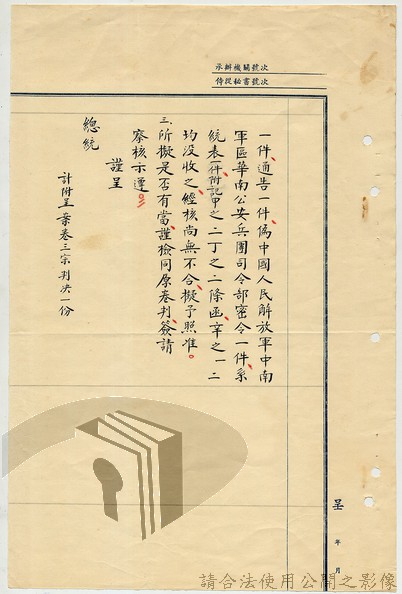 承辦機關號次
侍從秘書號次
一件、通告一件、偽中國人民解放軍中南
軍區華南公安兵團司令部密令一件、系
統表一件附記甲之二丁之二條函、辛之一二
均沒收之經核尚無不合、擬予照准。
三、所擬是否有當、謹檢同原卷判、簽請
察核示遵。
謹呈
總統
計附呈案卷三宗判決一份
呈
年 月
請合法使用公開之影像